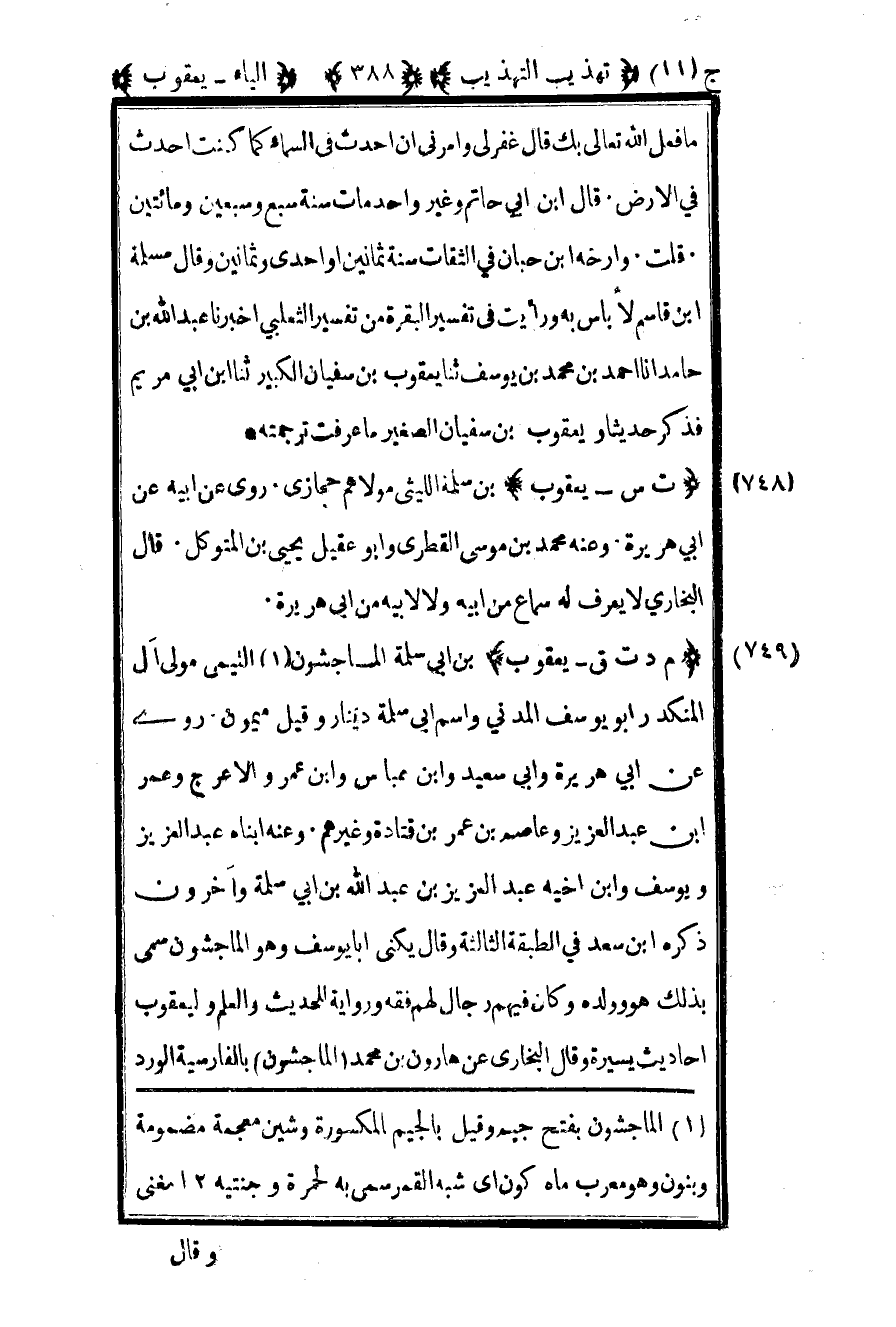 ج (١١) ﴿ تهذيب التهذيب ﴾ ﴿ ٣٨٨ ﴾ ﴿ الياء ـ يعقوب ﴾
مافعل الله تعالى بك قال غفرلى وامرنى ان احدث فى السماء كما كنت احدث
في الارض · قال ابن ابي حاتم وغير واحد مات سنة سبع وسبعين ومائتين
· قلت · وارخه ابن حبان في الثقات سنة ثمانين اواحدى وثمانين وقال مسلمة
ابن قاسم لا بأس به ورأيت فى تفسير البقرة من تفسير الثعلبي اخبرنا عبدالله بن
حامد انا احمد بن محمد بن يوسف ثنا يعقوب بن سفيان الكبير ثنا ابن ابي مريم
فذكر حديثا و يعقوب بن سفيان الصغير ماعرفت ترجمته *
(٧٤٨) ﴿ ت س ـ يعقوب ﴾ بن سلمة الليثى مولاهم حجازى · روى عن ابيه عن
ابي هريرة · وعنه محمد بن موسى القطرى وابو عقيل يحيى بن المتوكل · قال
البخاري لا يعرف له سماع من ابيه ولا لابيه من ابى هريرة ·
(٧٤٩) ﴿ م د ت ق ـ يعقوب ﴾ بن ابي سلمة الماجشون (١) التيمى مولى آل
المنكدر ابو يوسف المدني واسم ابى سلمة دينار و قيل ميمون · روے
عن ابي هريرة وابي سعيد وابن عباس وابن عمر و الاعرج وعمر
ابن عبدالعزيز وعاصم بن عمر بن قتادة وغيرهم · وعنه ابناه عبدالعزيز
و يوسف وابن اخيه عبد العزيز بن عبد الله بن ابي سلمة وآخرون
ذكره ابن سعد في الطبقة الثالثة وقال يكنى ابا يوسف وهو الماجشون سمى
بذلك هو وولده وكان فيهم رجال لهم فقه ورواية للحديث والعلم و ليعقوب
احاديث يسيرة وقال البخارى عن هارون بن محمد (الماجشون) بالفارسية الورد
(١) الماجشون بفتح جيم وقيل بالجيم المكسورة وشين معجمة مضمومة
وبنون وهو معرب ماه كون اى شبه القمر سمى به لحمرة و جنتيه ١٢ مغنى
وقال